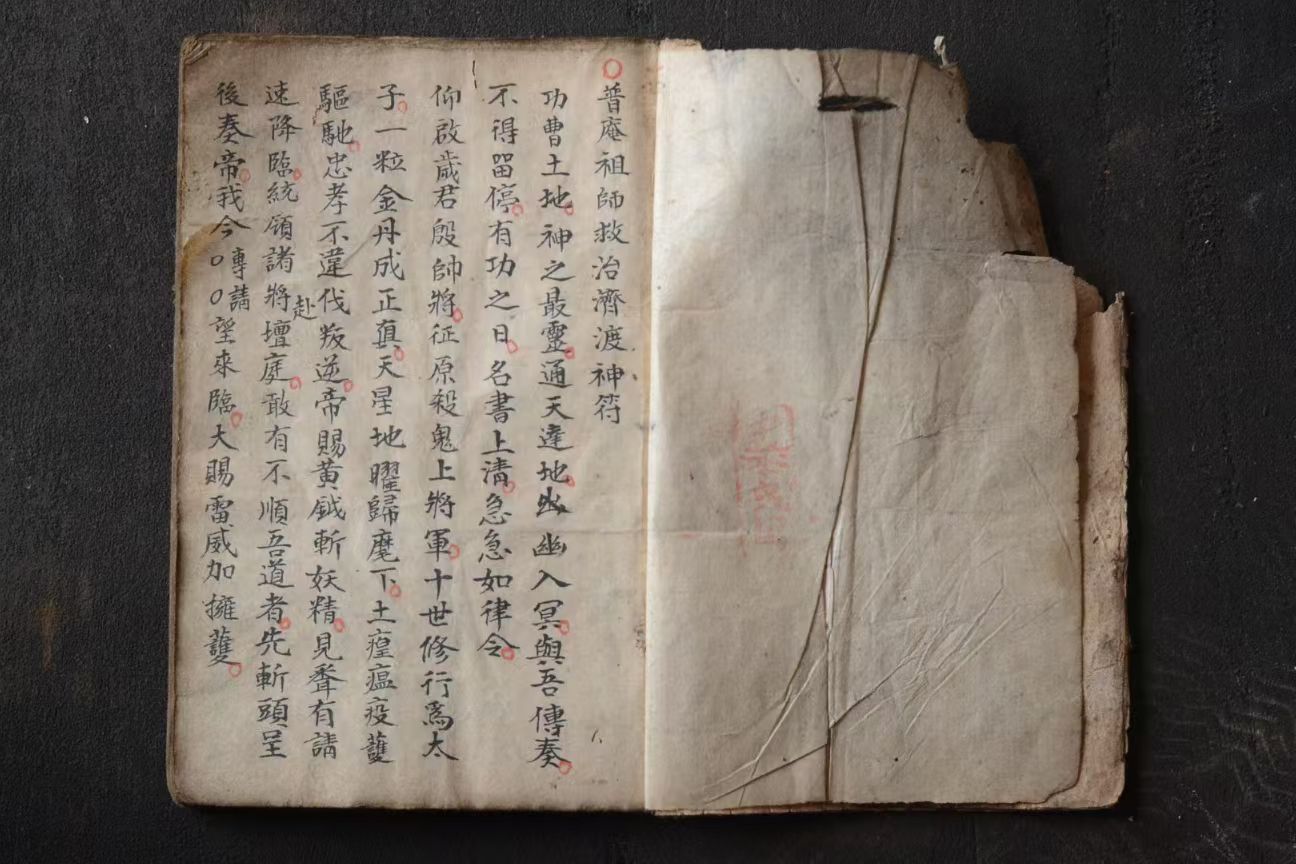 普庵祖師救治濟渡神符
功曹土地神之最靈通天達地出幽入冥與吾傳奏
不得留停有功之日名書上清急急如律令
仰啟歲君殷帥將征原殺鬼上將軍十世修行為太
子一粒金丹成正真天星地曜歸麾下土瘟瘟疫護
驅馳忠孝不違伐叛逆帝賜黃鉞斬妖精見香有請
速降臨統領諸將赴壇庭敢有不順吾道者先斬頭呈
後奏帝我今專請〇〇望來臨大賜雷威加擁護